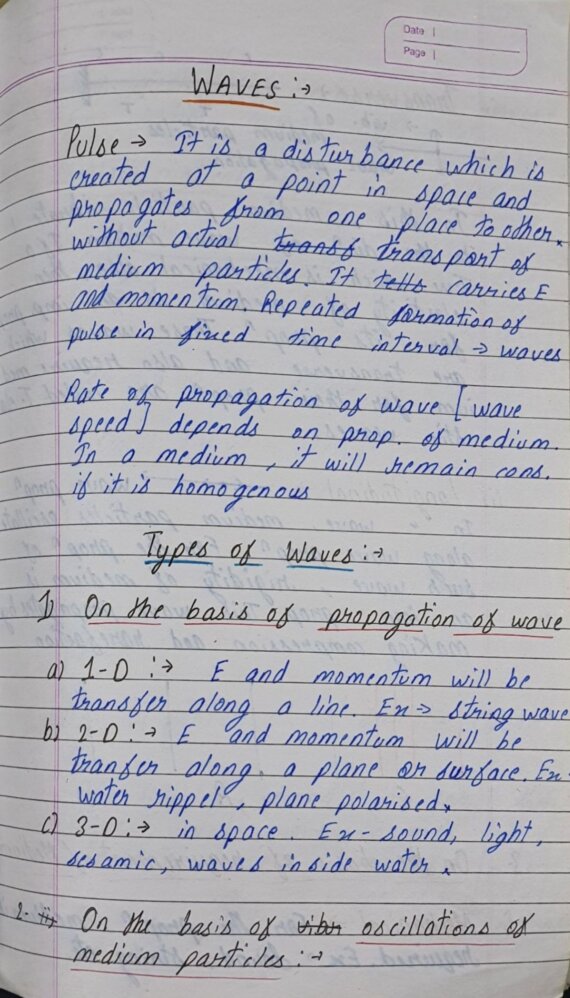 Date |
Page |
WAVES :→
Pulse → It is a disturbance which is
created at a point in space and
propagates from one place to other.
without actual transf transport of
medium particles. It tells carries E
and momentum. Repeated formation of
pulse in fixed time interval → waves
Rate of propagation of wave [wave
speed] depends on prop. of medium.
In a medium, it will remain cons.
if it is homogenous
Types of Waves :→
1) On the basis of propagation of wave
a) 1-D :→ E and momentum will be
transfer along a line. Ex → string wave
b) 2-D :→ E and momentum will be
transfer along. a plane or surface. Ex-
water rippel, plane polarised.
c) 3-D :→ in space. Ex- sound, light,
sesamic, waves inside water.
2. ii) On the basis of vibr oscillations of
medium particles :→